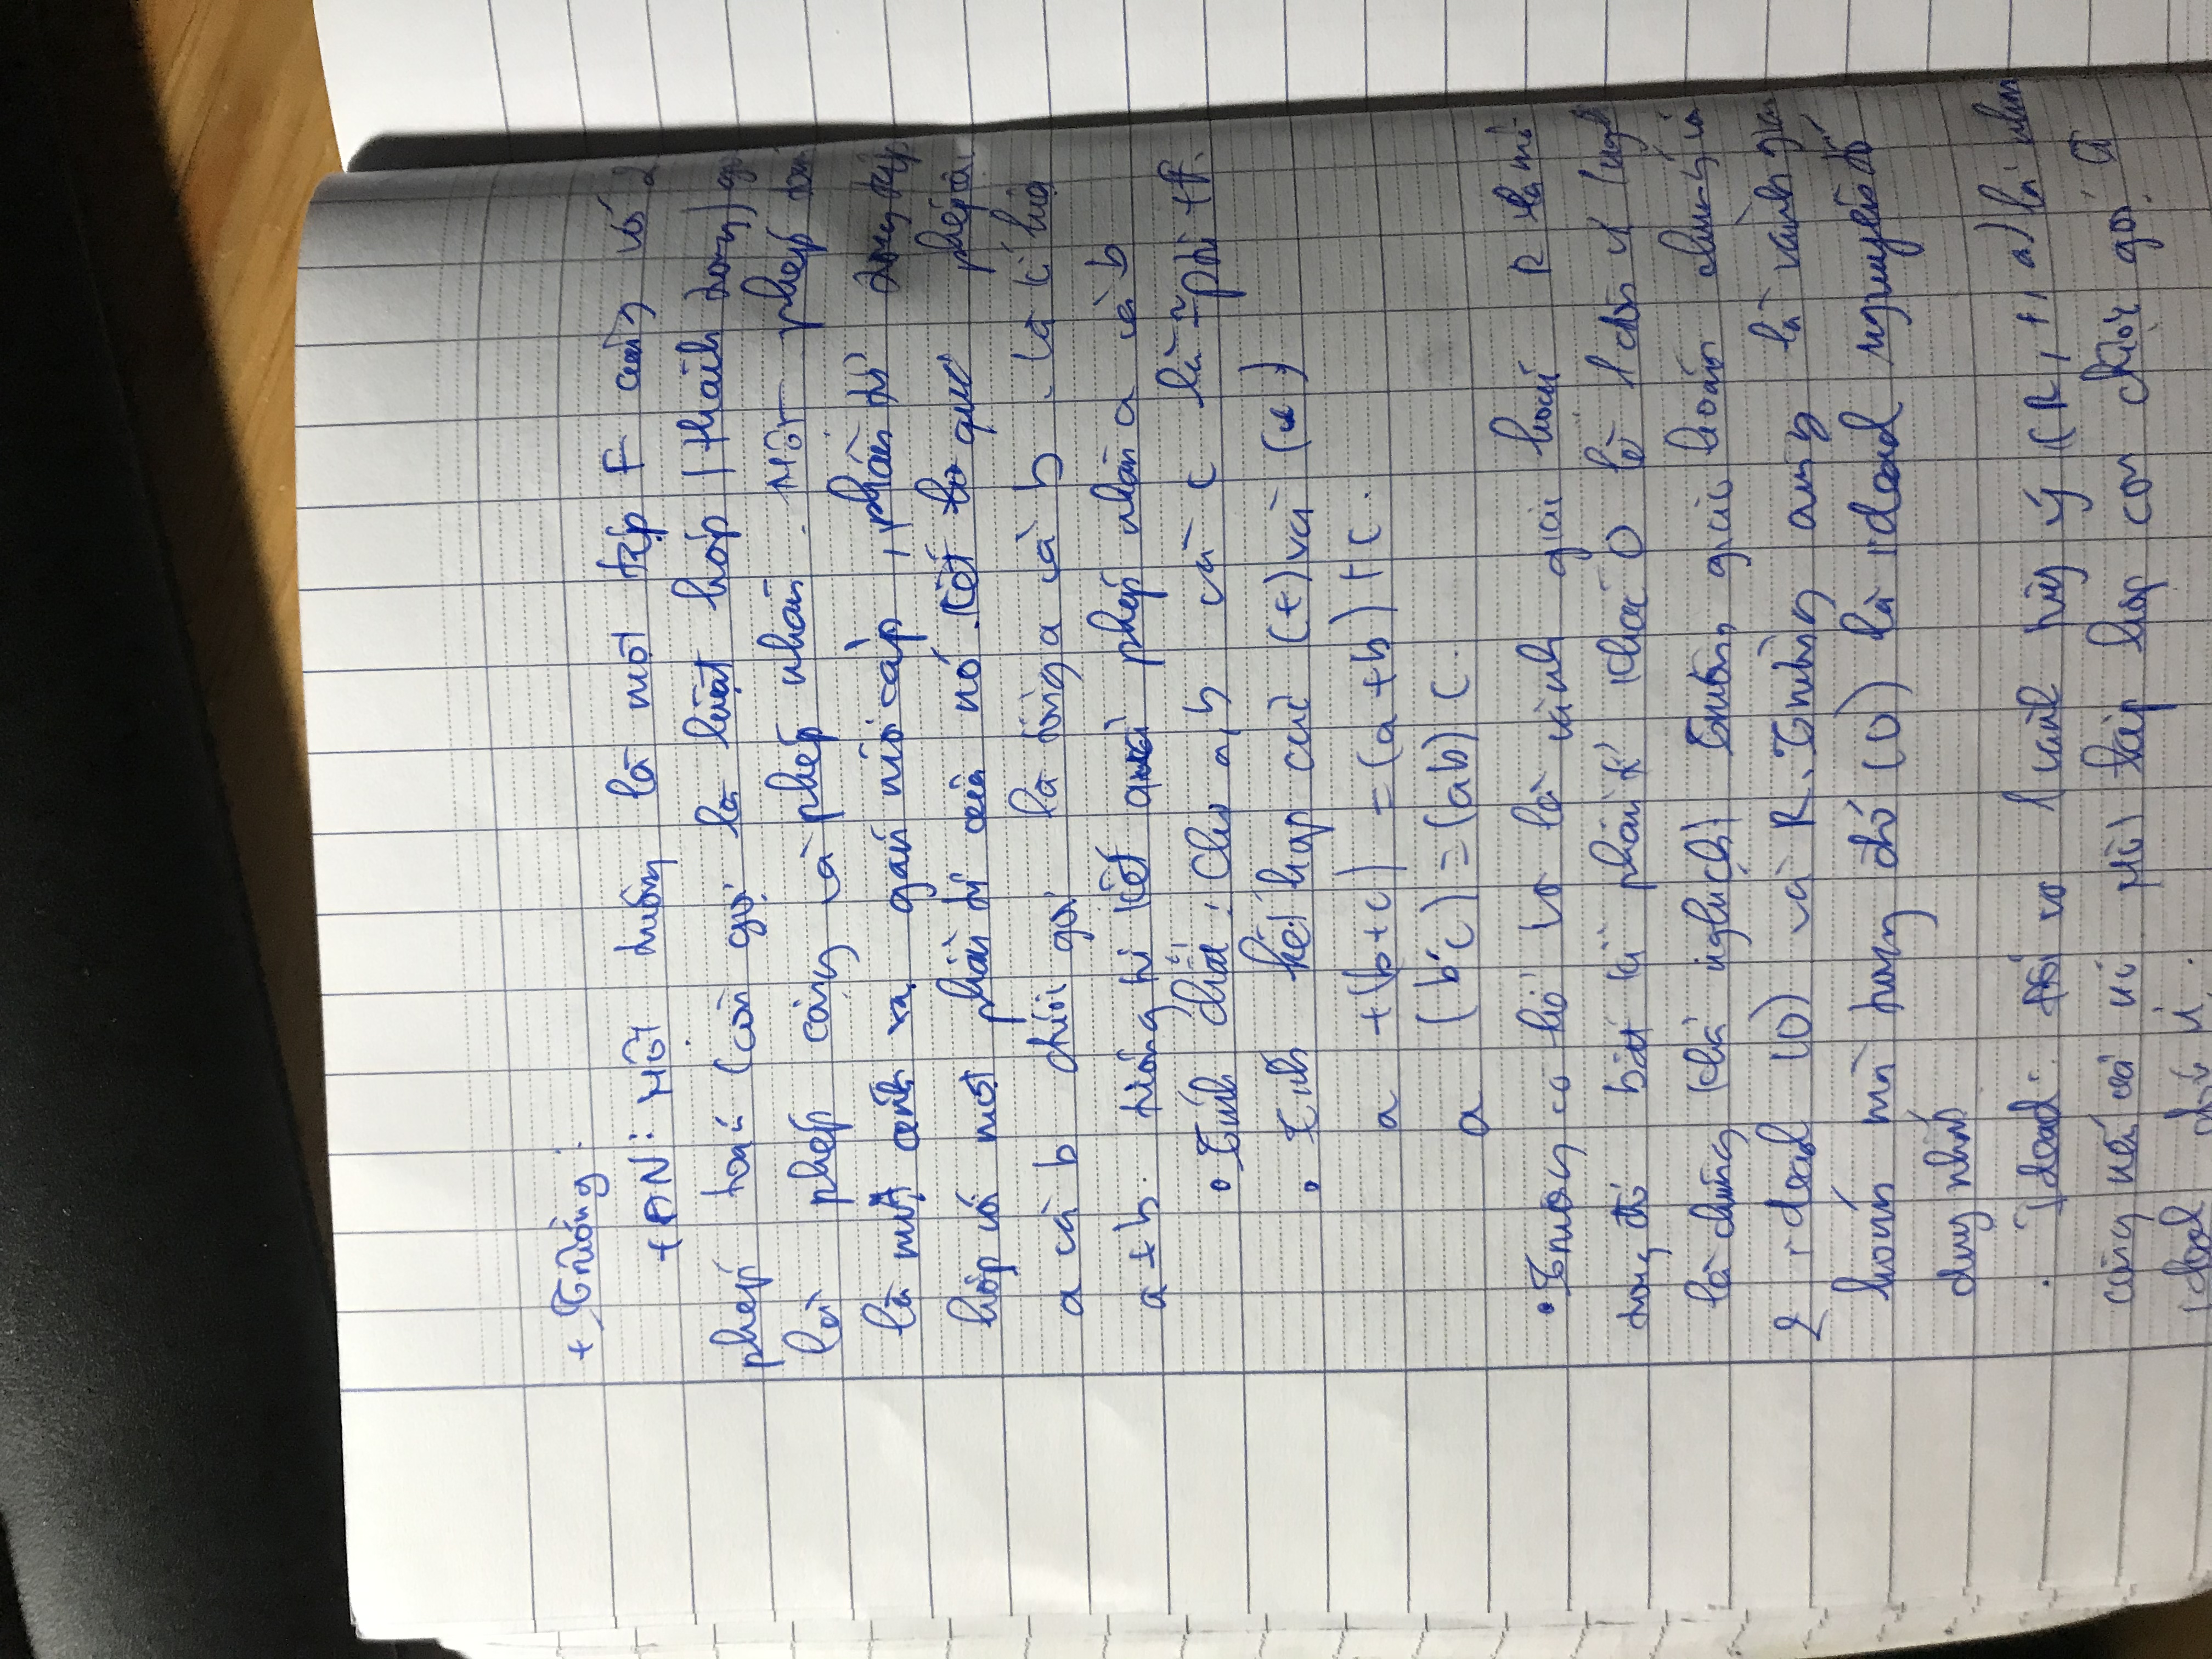 + Trường:
+ ĐN: Một trường là một tập F cùng với 2
phép toán (còn gọi là luật hợp thành trong) gọi
là phép cộng và phép nhân. Một phép toán
là một ánh xạ gán mỗi cặp phần tử trong tập
hợp với một phần tử của nó. Kết quả phép
a và b được gọi là tổng a và b và kí hiệu
a + b. tương tự kết quả phép nhân a và b
• Tính chất: Cho a, b và c là
• Tính kết hợp của (+) và (x)
a + (b+c) = (a+b) + c.
a (b.c) = (ab) c.
• Trường có là vành giao hoán R mà
trong đó bất kì phần tử khác 0 là 1 đơn vị (nghĩa
là chúng khả nghịch) Trường giao hoán chúng là
2 ideal (0) và R. Trường cũng là vành giao
hoán mà trong đó (0) là ideal nguyên tố
duy nhất
• Ideal: Đối với 1 vành tùy ý (R, +, là nhóm
cộng của nó. Một tập hợp con được gọi là
ideal